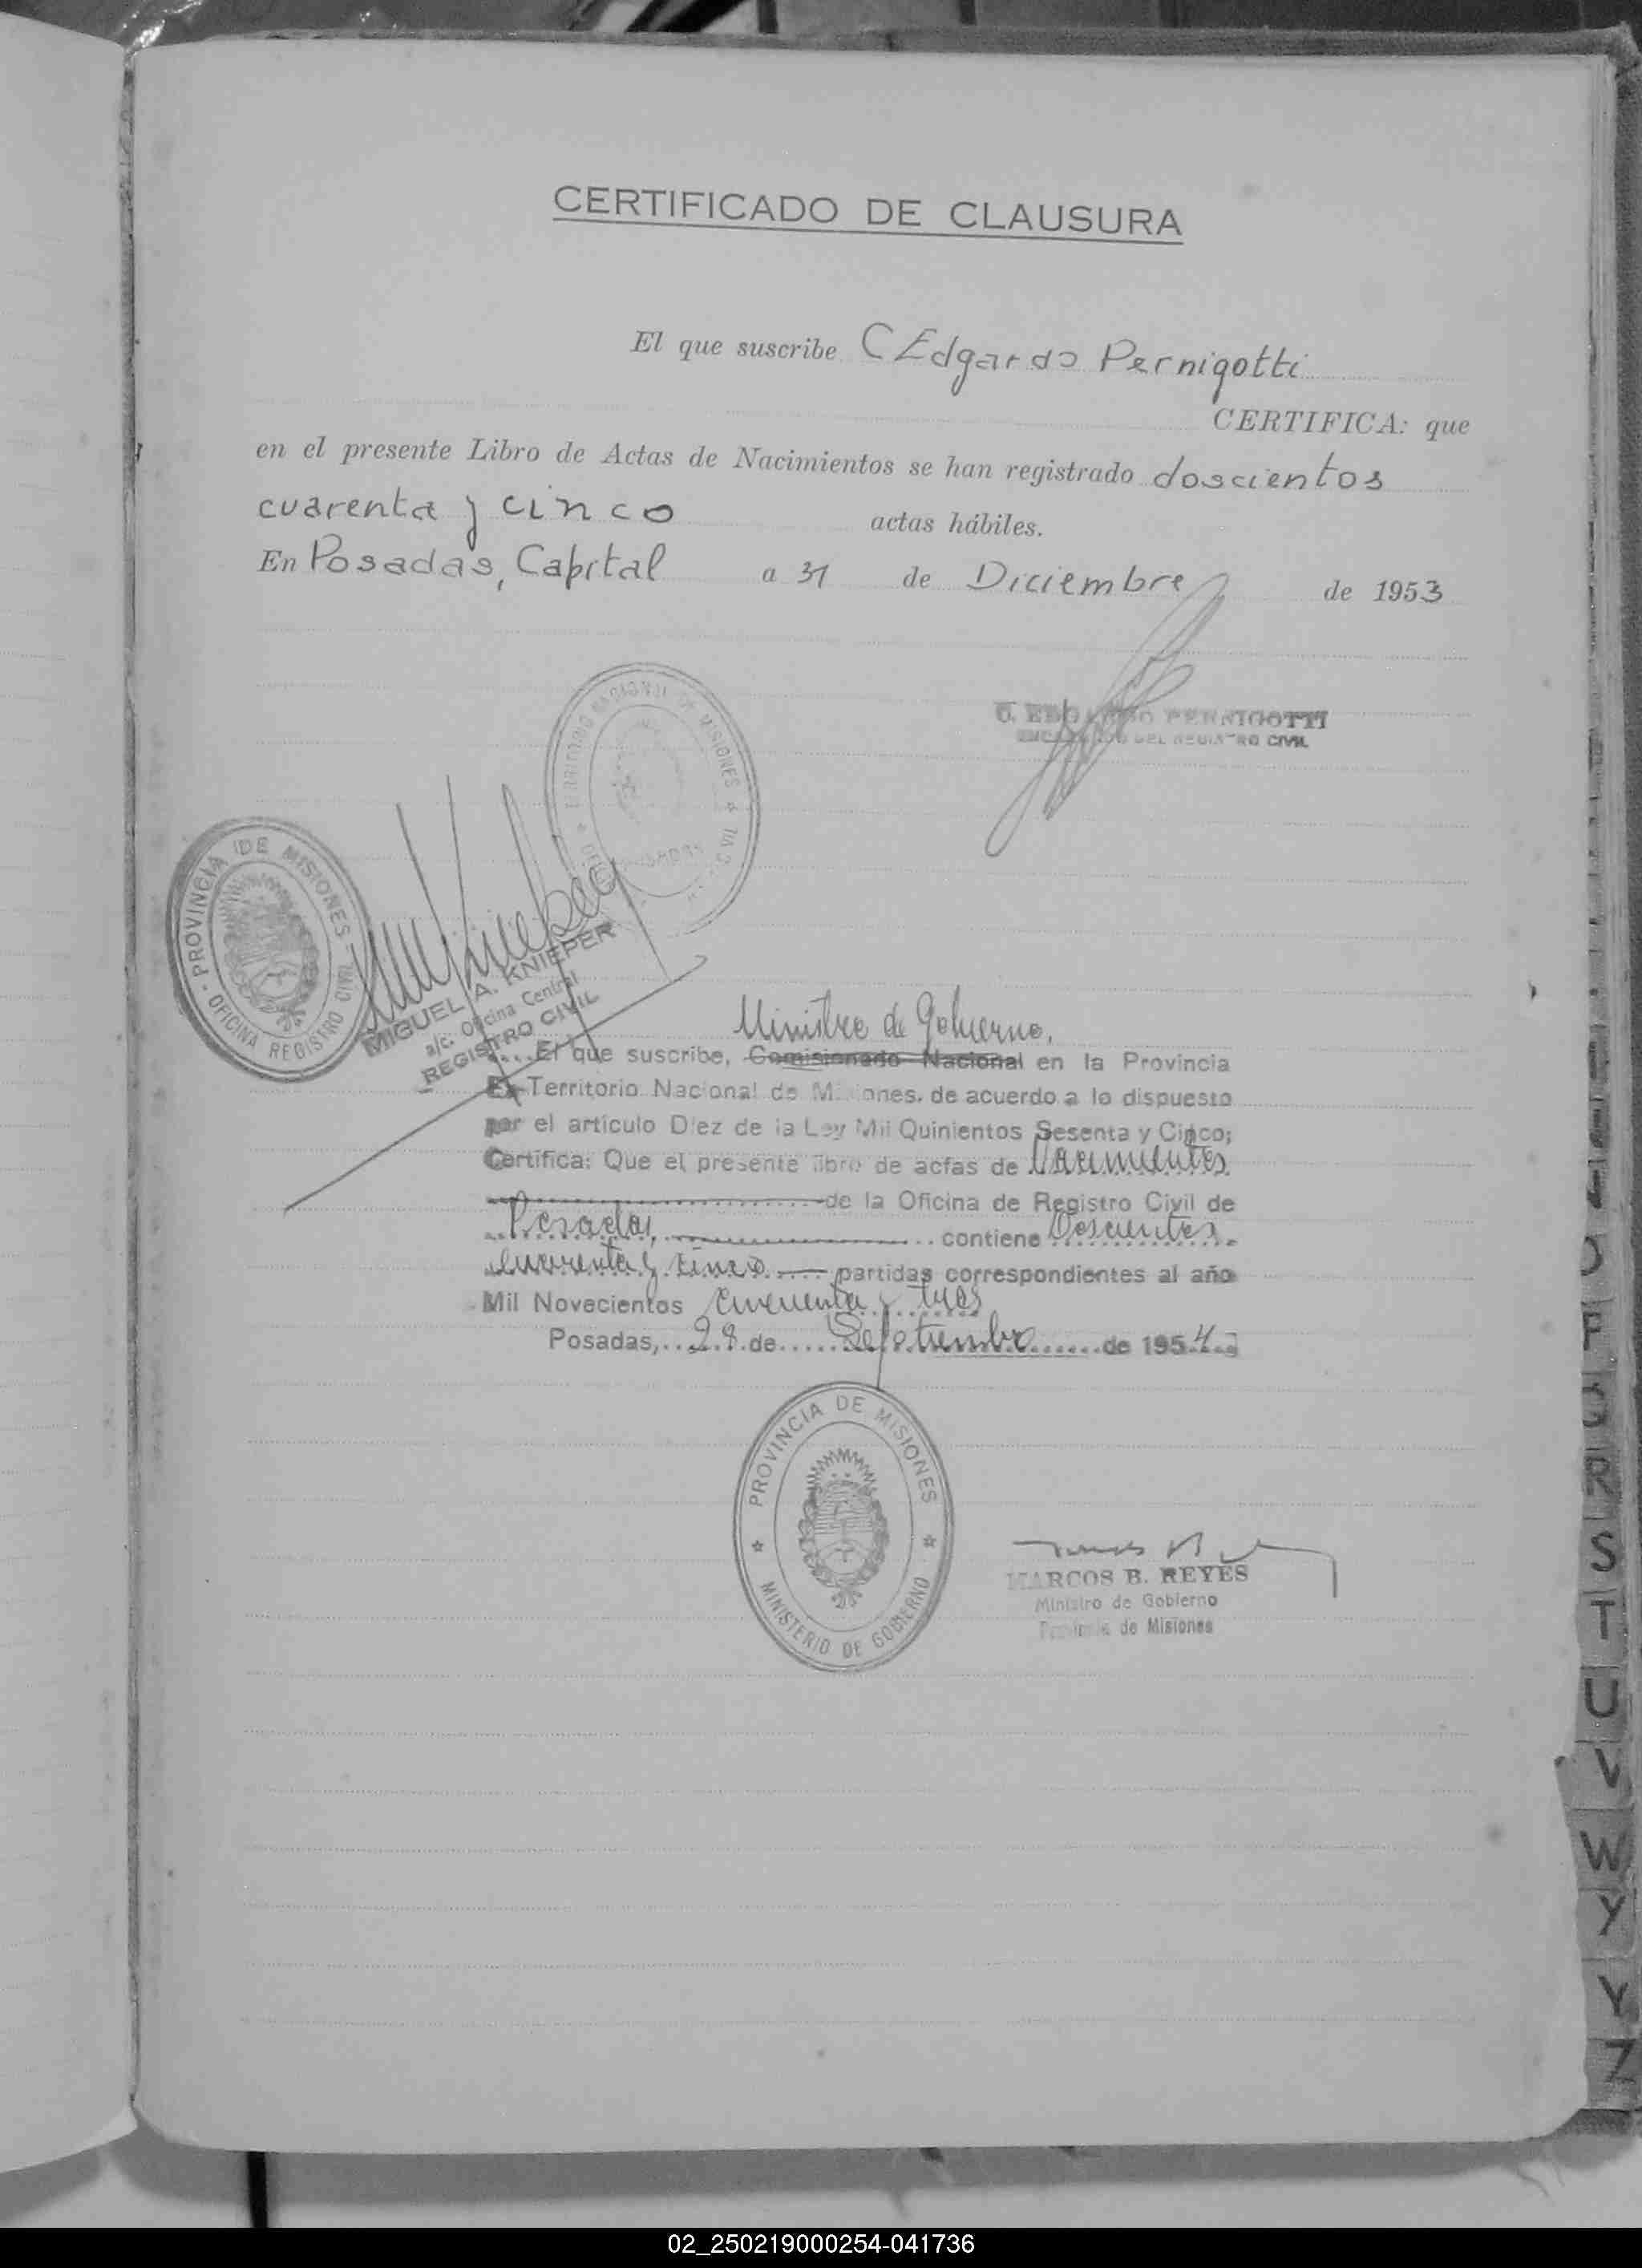 CERTIFICADO DE CLAUSURA
El que suscribe C Edgardo Pernigotti
CERTIFICA: que
en el presente Libro de Actas de Nacimientos se han registrado doscientos
cuarenta y cinco actas hábiles.
En Posadas, Capital a 31 de Diciembre de 1953
TERRITORIO NACIONAL DE MISIONES
C. EDGARDO PERNIGOTTI
ENCARGADO DEL REGISTRO CIVIL
PROVINCIA DE MISIONES
OFICINA REGISTRO CIVIL
MIGUEL A. KNIEPER
a/c. Oficina Central
REGISTRO CIVIL
Ministro de Gobierno,
El que suscribe, Comisionado Nacional en la Provincia
Ex Territorio Nacional de Misiones, de acuerdo a lo dispuesto
por el artículo Diez de la Ley Mil Quinientos Sesenta y Cinco;
Certifica: Que el presente libro de actas de Nacimientos
de la Oficina de Registro Civil de
Posadas, contiene Doscientos
cuarenta y cinco partidas correspondientes al año
Mil Novecientos cincuenta y tres
Posadas, 28 de Setiembre de 1954
PROVINCIA DE MISIONES
MINISTERIO DE GOBIERNO
MARCOS B. REYES
Ministro de Gobierno
Provincia de Misiones
P
R
S
T
U
V
W
Y
Y
Z
02_250219000254-041736